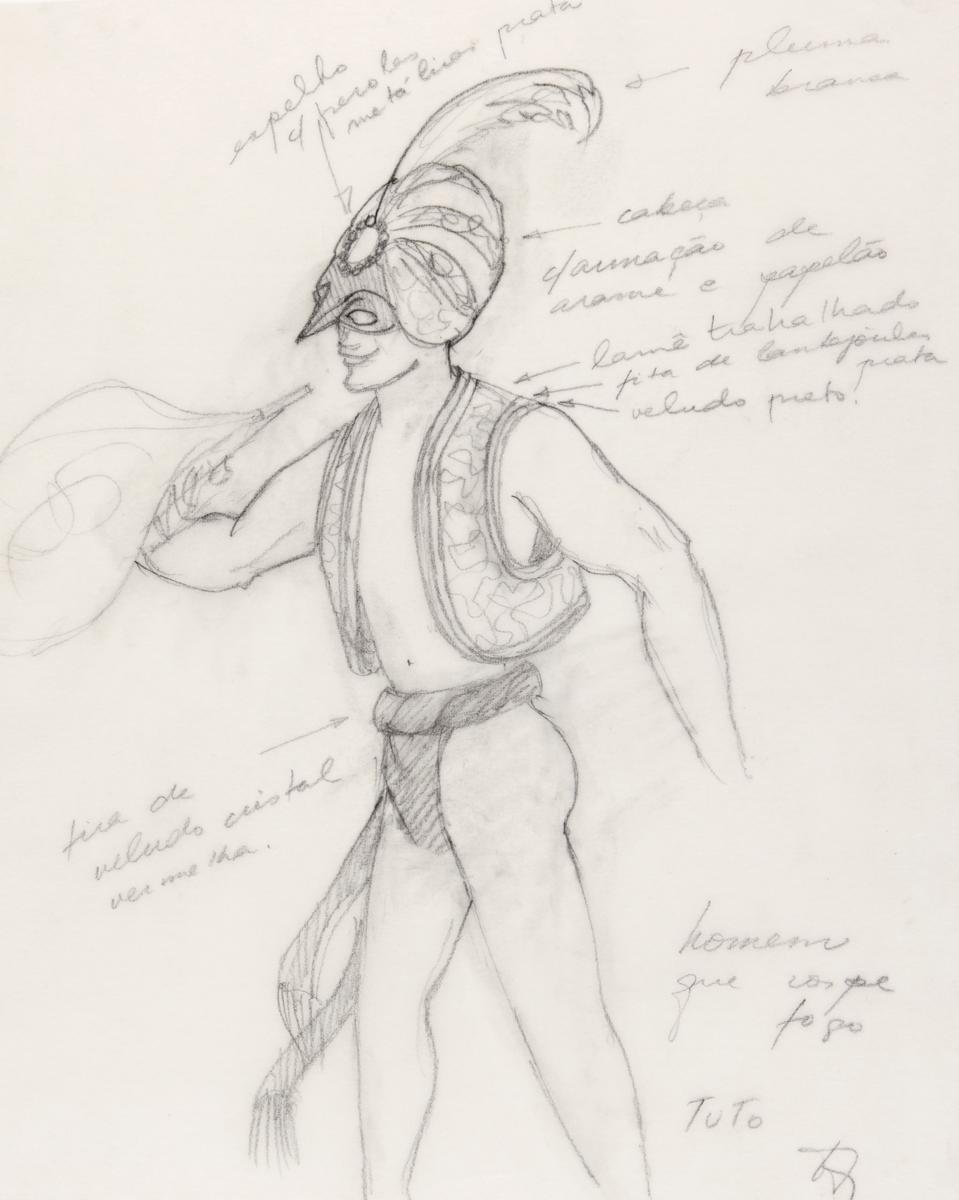 espelho
c/ perolas
metálicas prata
pluma
branca
cabeça
c/armação de
arame e papelão
lamê trabalhado
fita de lantejoulas
prata
veludo preto.
tira de
veludo cristal
vermelha.
homem
que cospe
fogo
TUTO